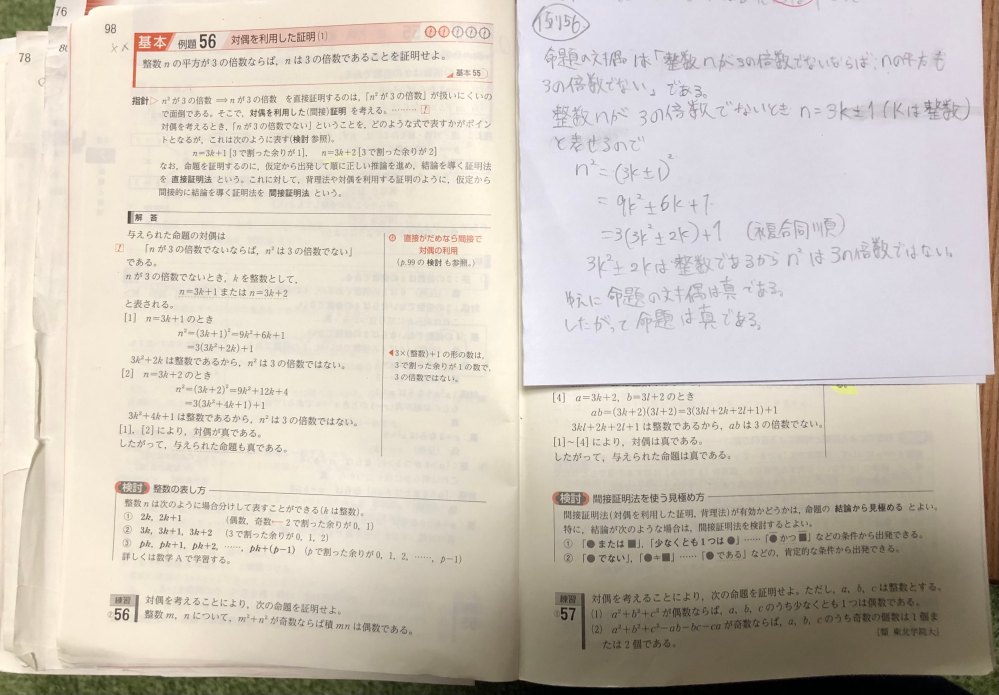 76
78
98
基本 例題 56 対偶を利用した証明 (1)
整数 n の平方が 3 の倍数ならば，n は 3 の倍数であることを証明せよ。
基本 55
指針 n²が3の倍数 ⟹ nが3の倍数 を直接証明するのは，「n²が3の倍数」が扱いにくいの
で面倒である。そこで，対偶を利用した(間接)証明 を考える。………
対偶を考えるとき，「nが3の倍数でない」ということを，どのような式で表すかがポイン
トとなるが，これは次のように表す(検討 参照)。
n=3k+1 [3で割った余りが1]，　n=3k+2 [3で割った余りが2]
なお，命題を証明するのに，仮定から出発して順に正しい推論を進め，結論を導く証明法
を 直接証明法 という。これに対して，背理法や対偶を利用する証明のように，仮定から
間接的に結論を導く証明法を 間接証明法 という。
解答
与えられた命題の対偶は
「nが3の倍数でないならば，n²は3の倍数でない」
である。
nが3の倍数でないとき，kを整数として，
n=3k+1 または n=3k+2
と表される。
[1] n=3k+1のとき
n²=(3k+1)²=9k²+6k+1
=3(3k²+2k)+1
3k²+2kは整数であるから，n²は3の倍数ではない。
[2] n=3k+2のとき
n²=(3k+2)²=9k²+12k+4
=3(3k²+4k+1)+1
3k²+4k+1は整数であるから，n²は3の倍数ではない。
[1]，[2]により，対偶が真である。
したがって，与えられた命題も真である。
直接がだめなら間接で
対偶の利用
(p.99の検討も参照。)
3×(整数)+1の形の数は，
3で割った余りが1の数で，
3の倍数ではない。
検討 整数の表し方
整数 n は次のように場合分けして表すことができる(kは整数)。
① 2k, 2k+1　(偶数，奇数←2で割った余りが0，1)
② 3k, 3k+1, 3k+2　(3で割った余りが0，1，2)
③ pk, pk+1, pk+2, ……, pk+(p−1)　(pで割った余りが0，1，2，……，p−1)
詳しくは数学Aで学習する。
練習 56 対偶を考えることにより，次の命題を証明せよ。
整数 m，n について，m²+n²が奇数ならば積 mn は偶数である。
例56
命題の対偶は「整数nが3の倍数でないならば，nの平方も
3の倍数でない」である。
整数nが3の倍数でないとき n=3k±1(kは整数)
と表せるので
n²=(3k±1)²
=9k²±6k+1
=3(3k²±2k)+1 (複合同順)
3k²±2kは整数であるからn²は3の倍数ではない。
ゆえに命題の対偶は真である。
したがって命題は真である。
[4] a=3k+2，b=3l+2のとき
ab=(3k+2)(3l+2)=3(3kl+2k+2l+1)+1
3kl+2k+2l+1は整数であるから，abは3の倍数でない。
[1]～[4]により，対偶は真である。
したがって，与えられた命題は真である。
検討 間接証明法を使う見極め方
間接証明法(対偶を利用した証明，背理法)が有効かどうかは，命題の 結論から見極める とよい。
特に，結論が次のような場合は，間接証明法を検討するとよい。
① 「● または ■」，「少なくとも1つは ●」……「● かつ ■」などの条件から出発できる。
② 「● でない」，「●≠■」……「● である」などの，肯定的な条件から出発できる。
練習 57 対偶を考えることにより，次の命題を証明せよ。ただし，a，b，cは整数とする。
(1) a²+b²+c²が偶数ならば，a，b，cのうち少なくとも1つは偶数である。
(2) a²+b²+c²−ab−bc−caが奇数ならば，a，b，cのうち奇数の個数は1個ま
たは2個である。
[類 東北学院大]